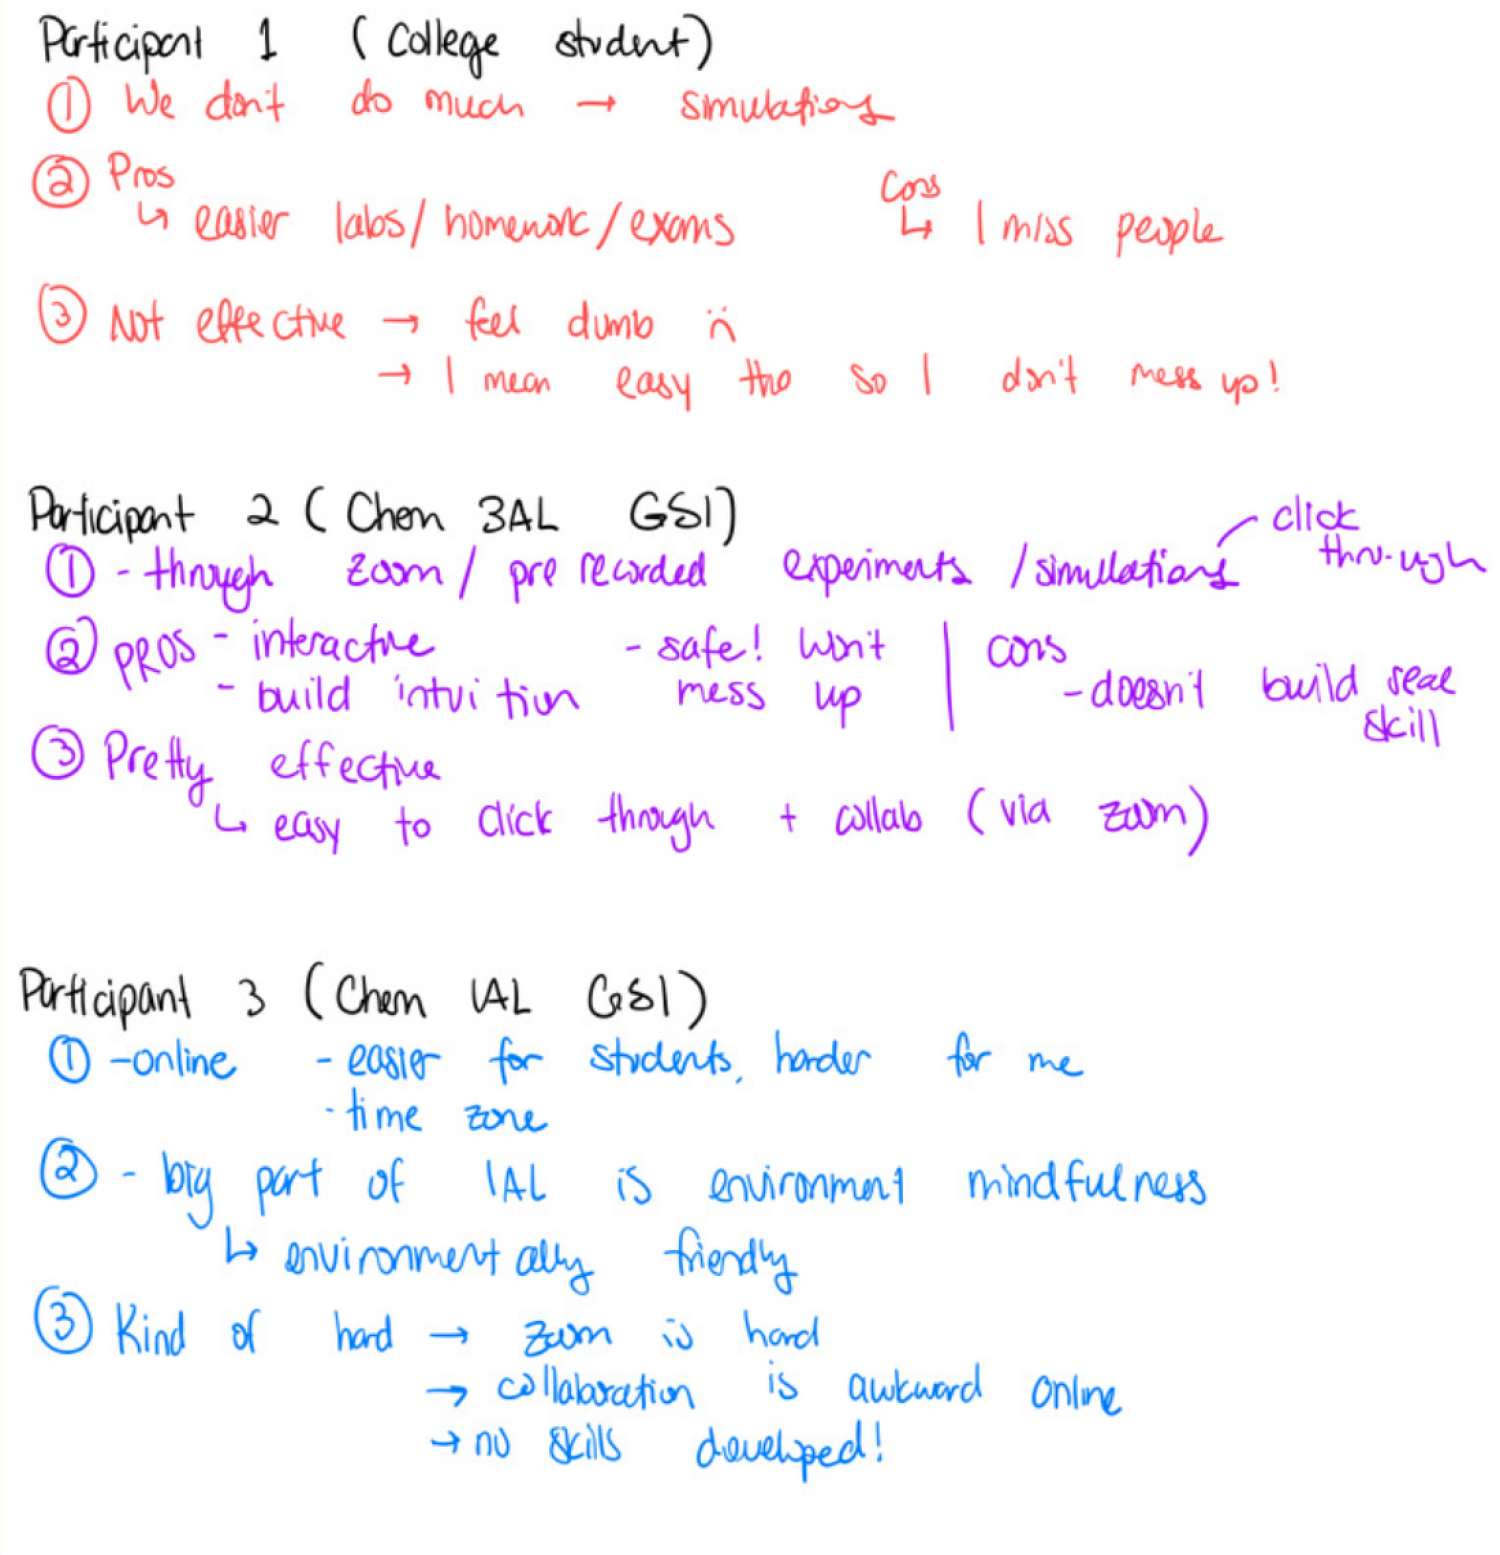 Participant 1 (College student)
① We don't do much → simulations
② Pros
↳ easier labs/homework/exams
Cons
↳ I miss people
③ Not effective → feel dumb :(
→ I mean easy tho so I don't mess up!
Participant 2 (Chem 3AL GSI)
① - through zoom/ pre recorded experiments /simullations
click
thro-ugh
② PROS - interactive
- build intuition
- safe! Won't
mess up
cons
- doesn't build real
skill
③ Pretty effective
↳ easy to click through + collab (via zoom)
Participant 3 (Chem 1AL GSI)
① -online - easier for students, harder for me
- time zone
② - big part of 1AL is environment mindfulness
↳ environmentally friendly
③ Kind of hard → zoom is hard
→ collaboration is awkward online
→ no skills developed!